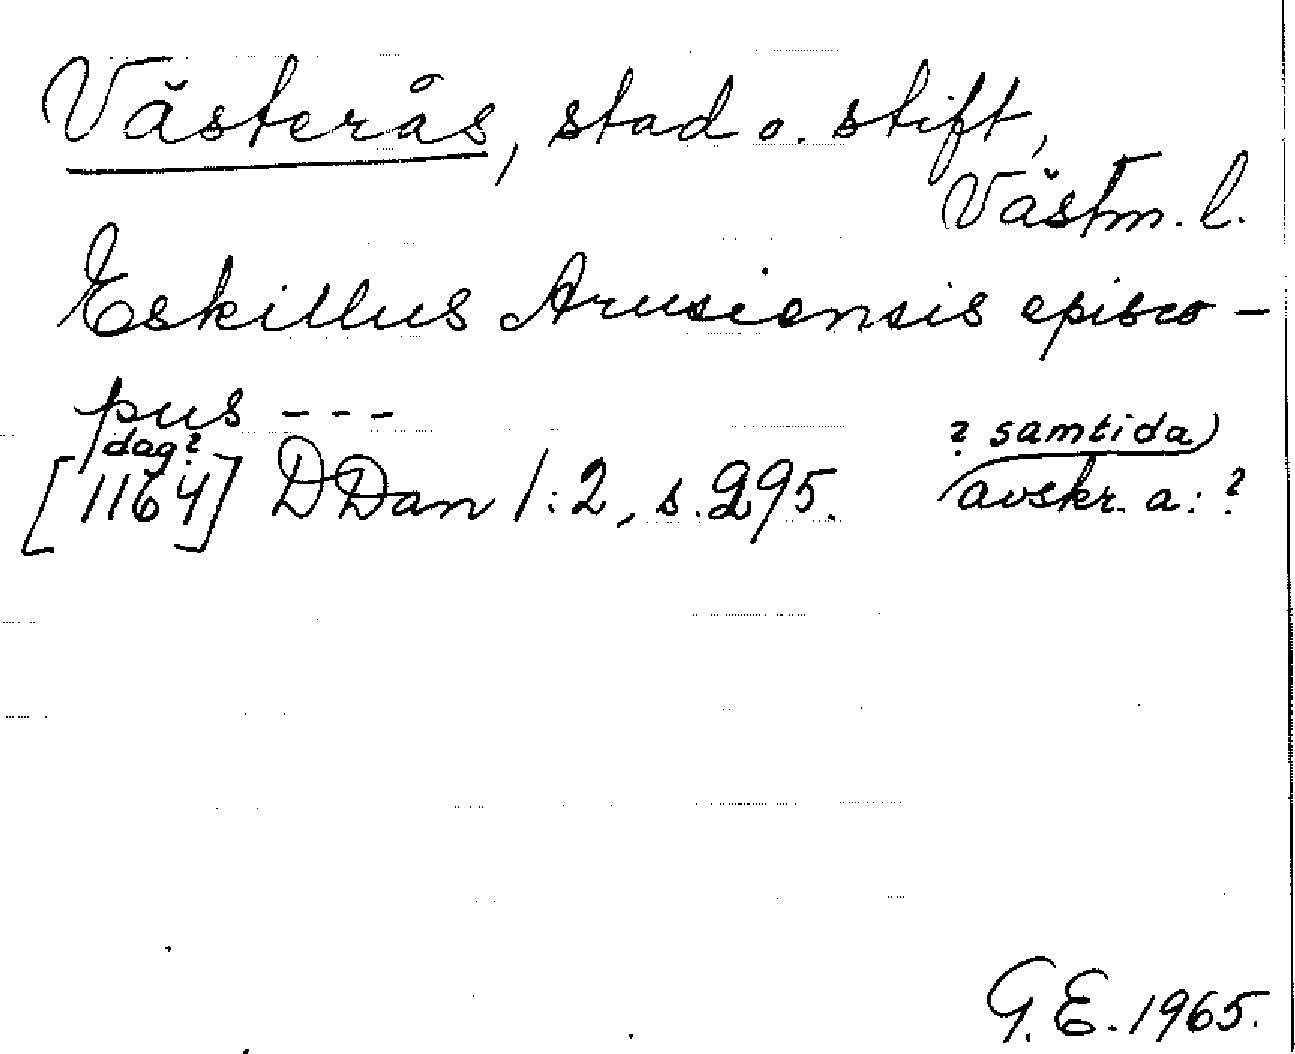 Västerås, stad o. stift,
Västm. l.
Eskillus Arusiensis episco-
pus ---
dag?
[1164] DDan 1:2, s. 295.
? samtida)
avskr. a: ?
G. E. 1965.